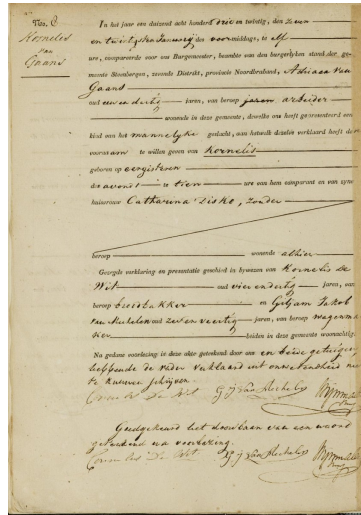 No. 6
Kornelis
van
Gaans
In het jaar een duizend acht honderd drie en twintig, den zeven
en twintigsten January des voor-middags, te elf
ure, compareerde voor ons Burgemeester, beambte van den burgerlyken stand der ge-
meente Steenbergen, tweede Distrikt, provincie Noordbraband, Adriaan van
Gaans
oud een en dertig jaren, van beroep arbeider
wonende in deze gemeente, dewelke ons heeft gepresenteerd een
kind van het mannelyke geslacht, aan hetwelk dezelve verklaard heeft de
voornaam te willen geven van Kornelis
geboren op eergisteren
des avonds te tien ure van hem comparant en van zyne
huisvrouw Catharina Disko, zonder
beroep wonende alhier
Gezegde verklaring en presentatie geschied in bywezen van Kornelis De
Wit oud vier en dertig jaren, van
beroep broodbakker en Giljam Jakob
van Mechelen oud zeven veertig jaren, van beroep wagenma
ker beiden in deze gemeente woonachtig.
Na gedane voorlezing is deze akte geteekend door ons en beide getuigen
hebbende de vader verklaard uit onwetendheid niet
te kunnen schryven.
Cornelis De Wit G J van Mechelen
Goedgekeurd het doorhalen van een woord
geteekend na voorlezing.
Cornelis De Wit G J van Mechelen